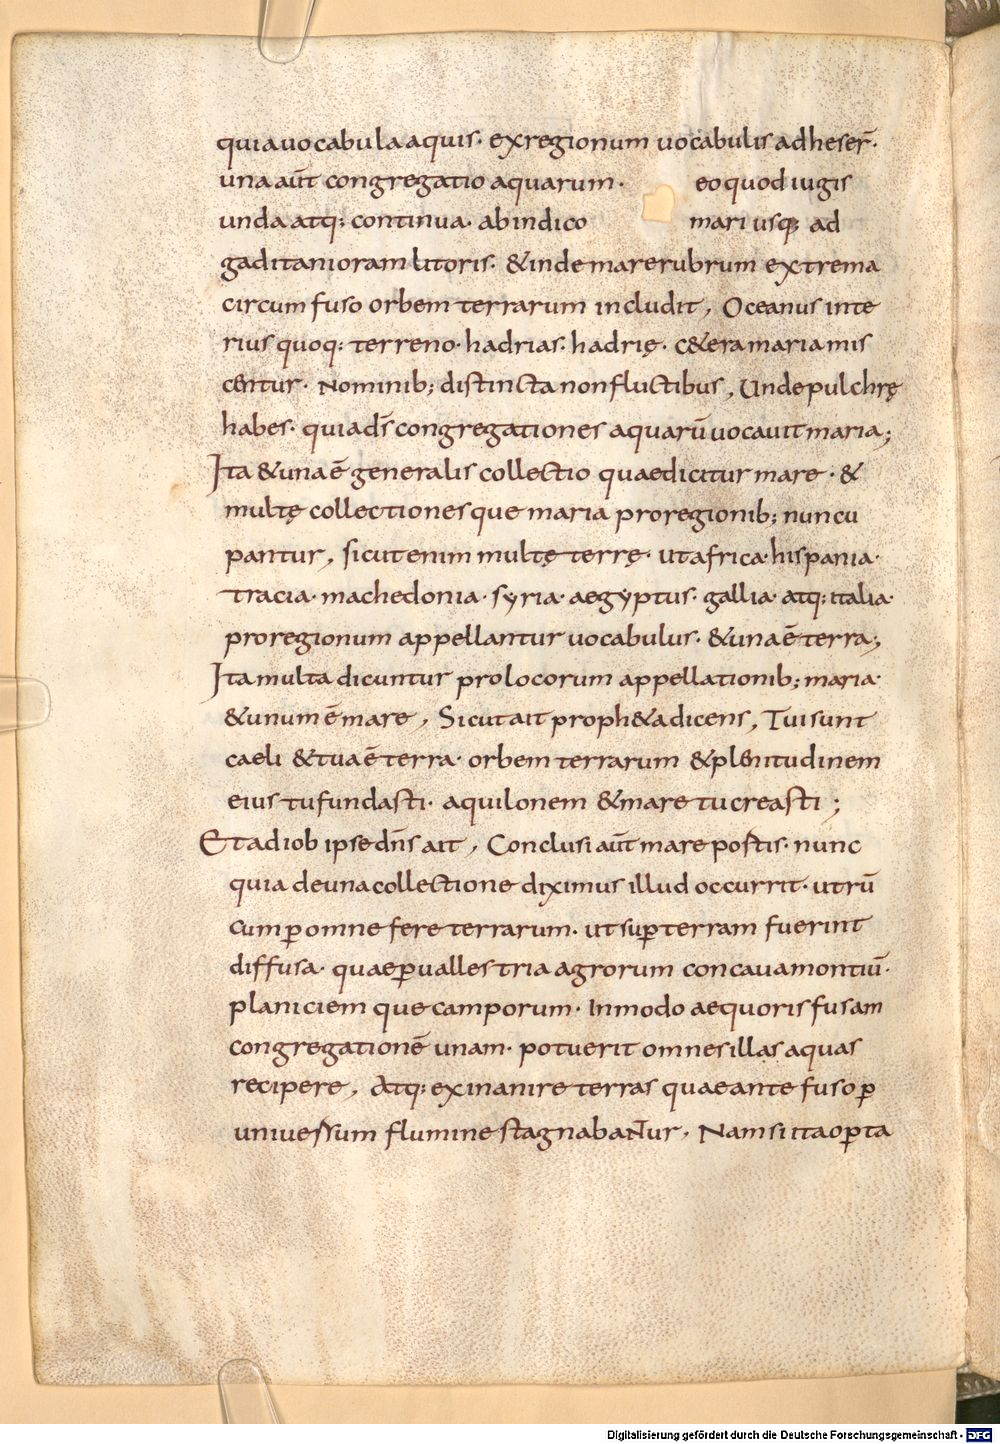 quia uocabula aquis· ex regionum uocabulis adheser̄·
una aūt congregatio aquarum· eo quod iugis
unda atq: continua· ab indico mari usq; ad
gaditani oram litoris· & inde mare rubrum extrema
circumfuso orbem terrarum includit, Oceanus inte
rius quoq: terreno· hadrias· hadrię· c&era maria mis
centur· Nominib; distincta non fluctibus, Unde pulchrę
habes· quia d̄s congregationes aquarū uocauit maria;
Ita & una ē generalis collectio quae dicitur mare· &
multę collectiones que maria pro regionib; nuncu
pantur, sicut enim multę terrę· ut africa· hispania·
tracia· machedonia· syria· aegyptus· gallia· atq: italia·
pro regionum appellantur uocabulus· & una ē terra;
Ita multa dicuntur pro locorum appellationib; maria·
& unum ē mare, Sicut ait proph&a dicens, Tui sunt
caeli & tua ē terra· orbem terrarum & plenitudinem
eius tu fundasti· aquilonem & mare tu creasti;
Et ad iob ipse dn̄s ait, Conclusi aūt mare postis· nunc
quia de una collectione diximus illud occurrit· utrū
cum ꝑ omne fere terrarum· ut suꝑ terram fuerint
diffusa· quae ꝑ ualles tria agrorum concaua montiū·
planiciem que camporum· In modo aequoris fusam
congregationē unam· potuerit omnes illas aquas
recipere, Atq: exinanire terras quae ante fuso ꝑ
uniuessum flumine stagnabaN̄ur, Nam si ita oꝑta
Digitalisierung gefördert durch die Deutsche Forschungsgemeinschaft - DFG